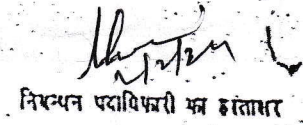 निबन्धन पदाधिकारी का हस्ताक्षर